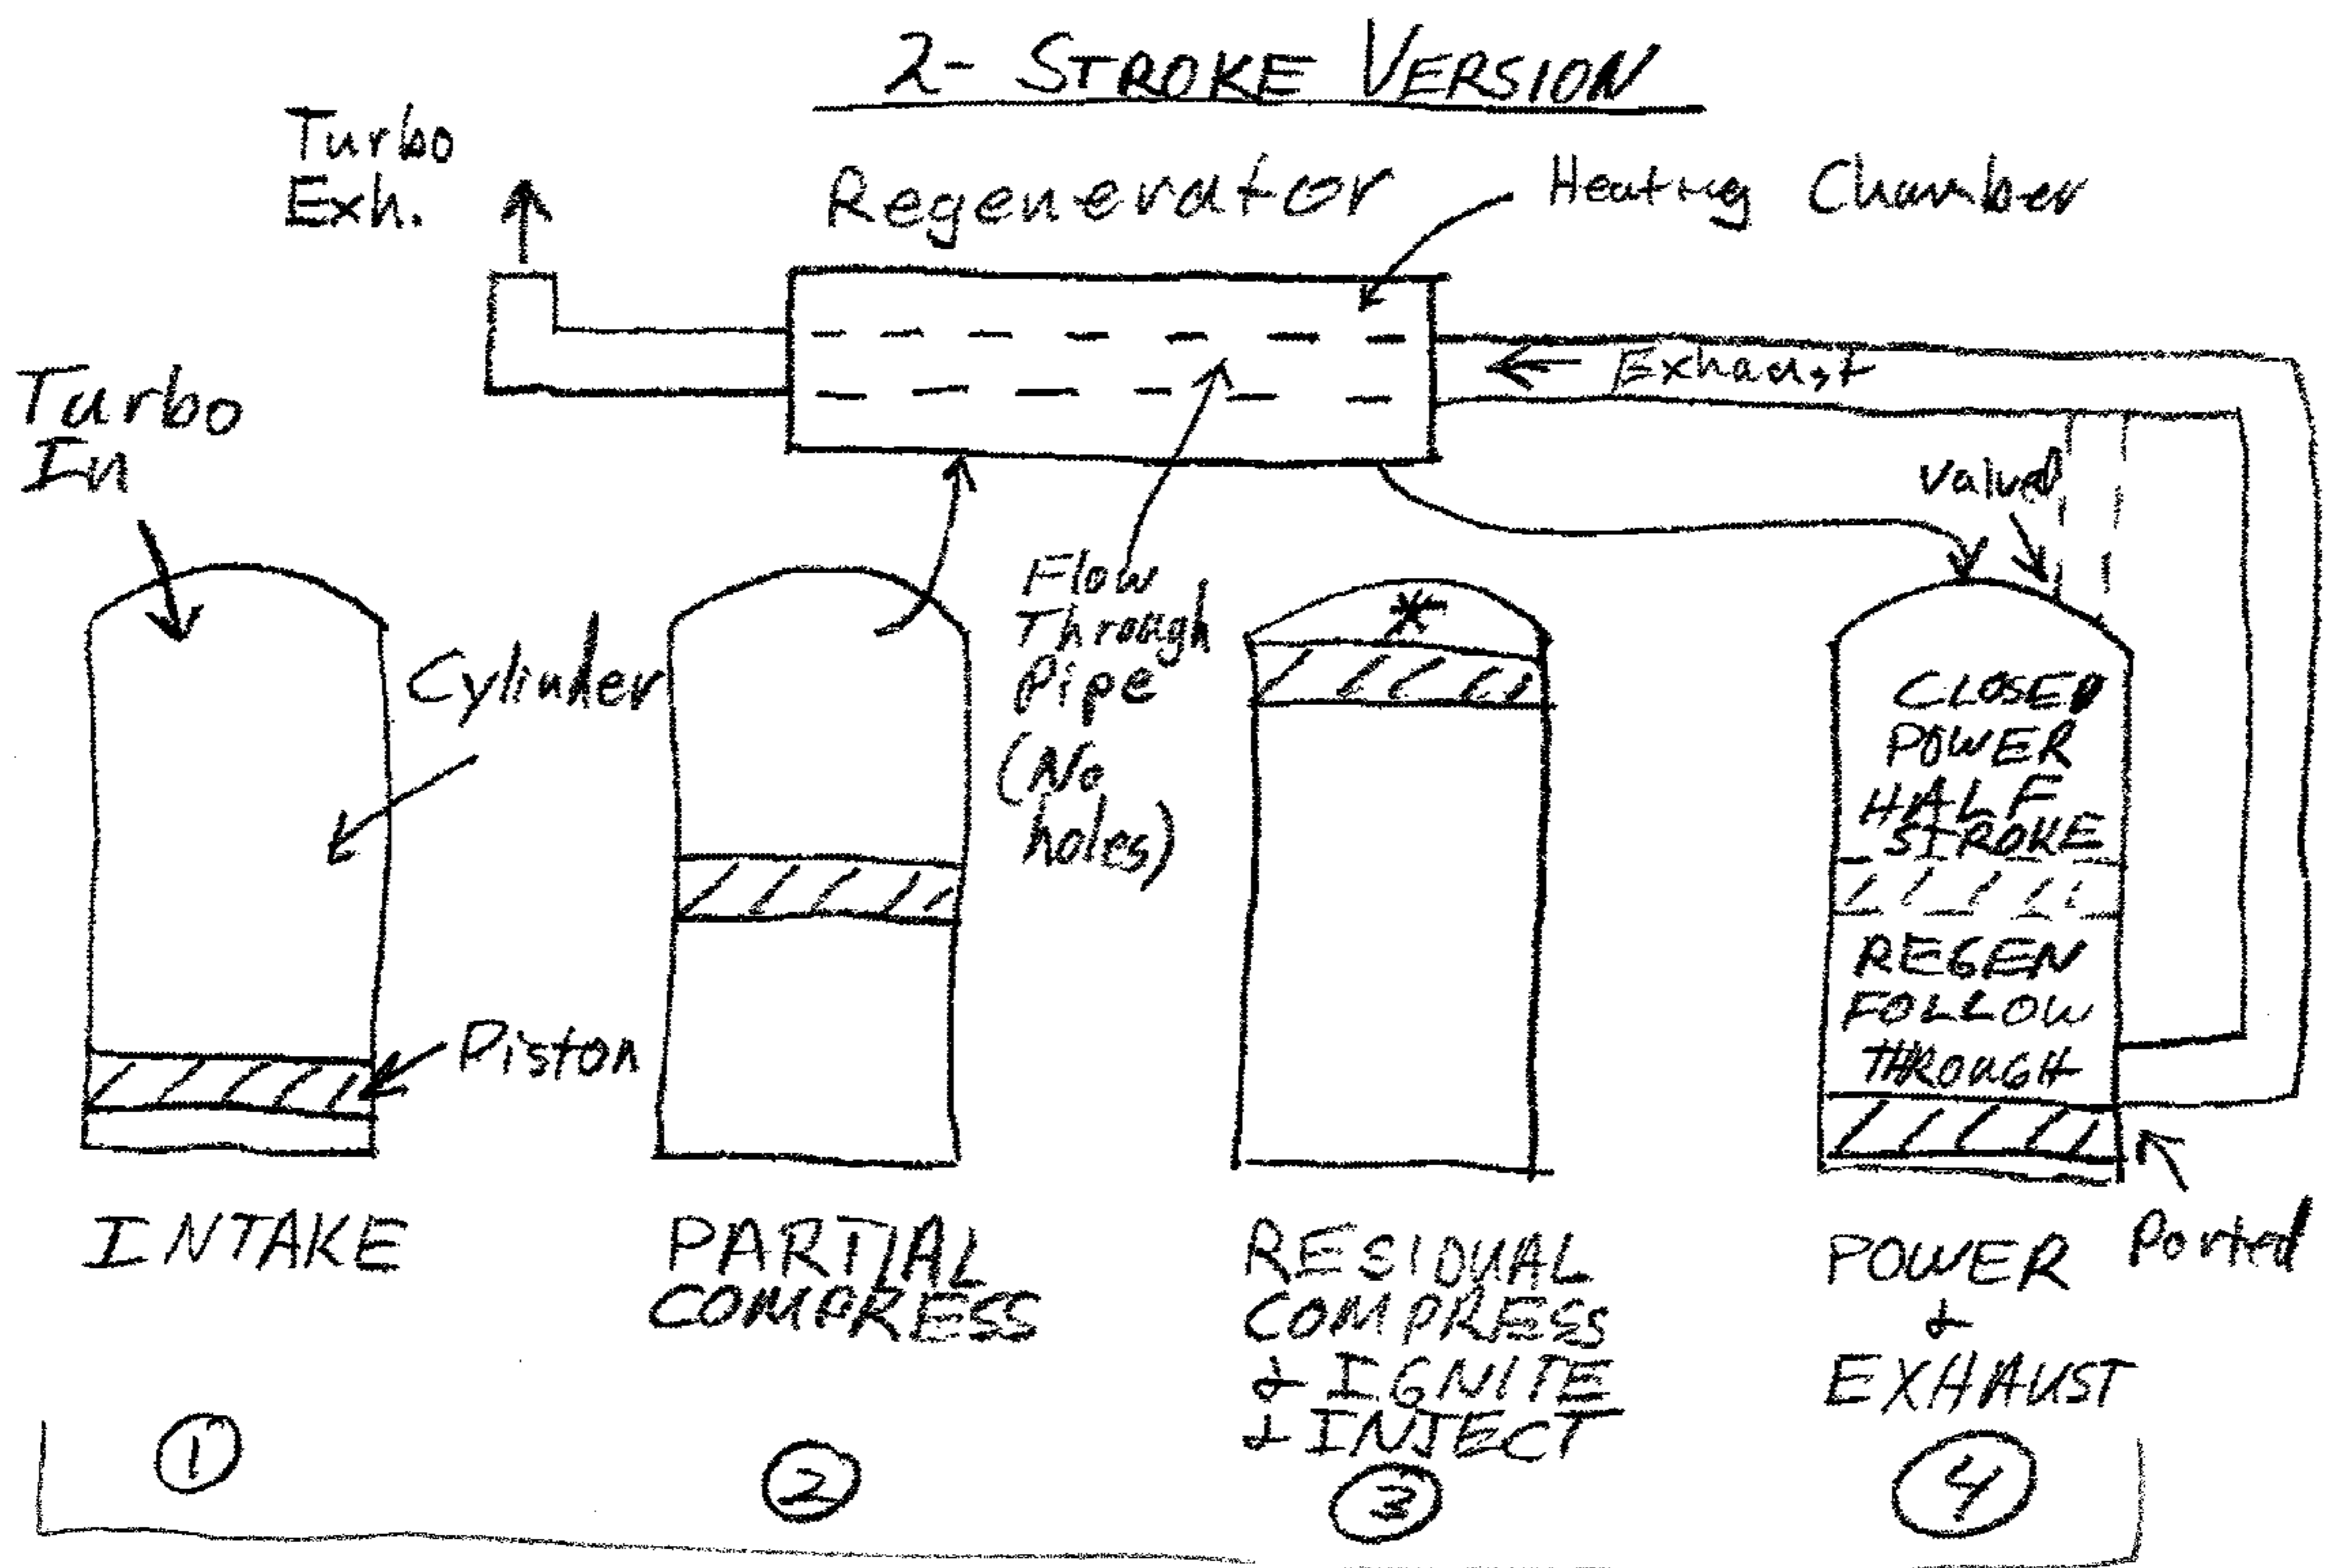 2- STROKE VERSION
Turbo
Exh.
Regenerator
Heating Chamber
Exhaust
Turbo
In
Valved
Flow
Through
Pipe
(No
holes)
Cylinder
Piston
*
CLOSED
POWER
HALF
STROKE
REGEN
FOLLOW
THROUGH
Ported
INTAKE
PARTIAL
COMPRESS
RESIDUAL
COMPRESS
& IGNITE
& INJECT
POWER
&
EXHAUST
1
2
3
4